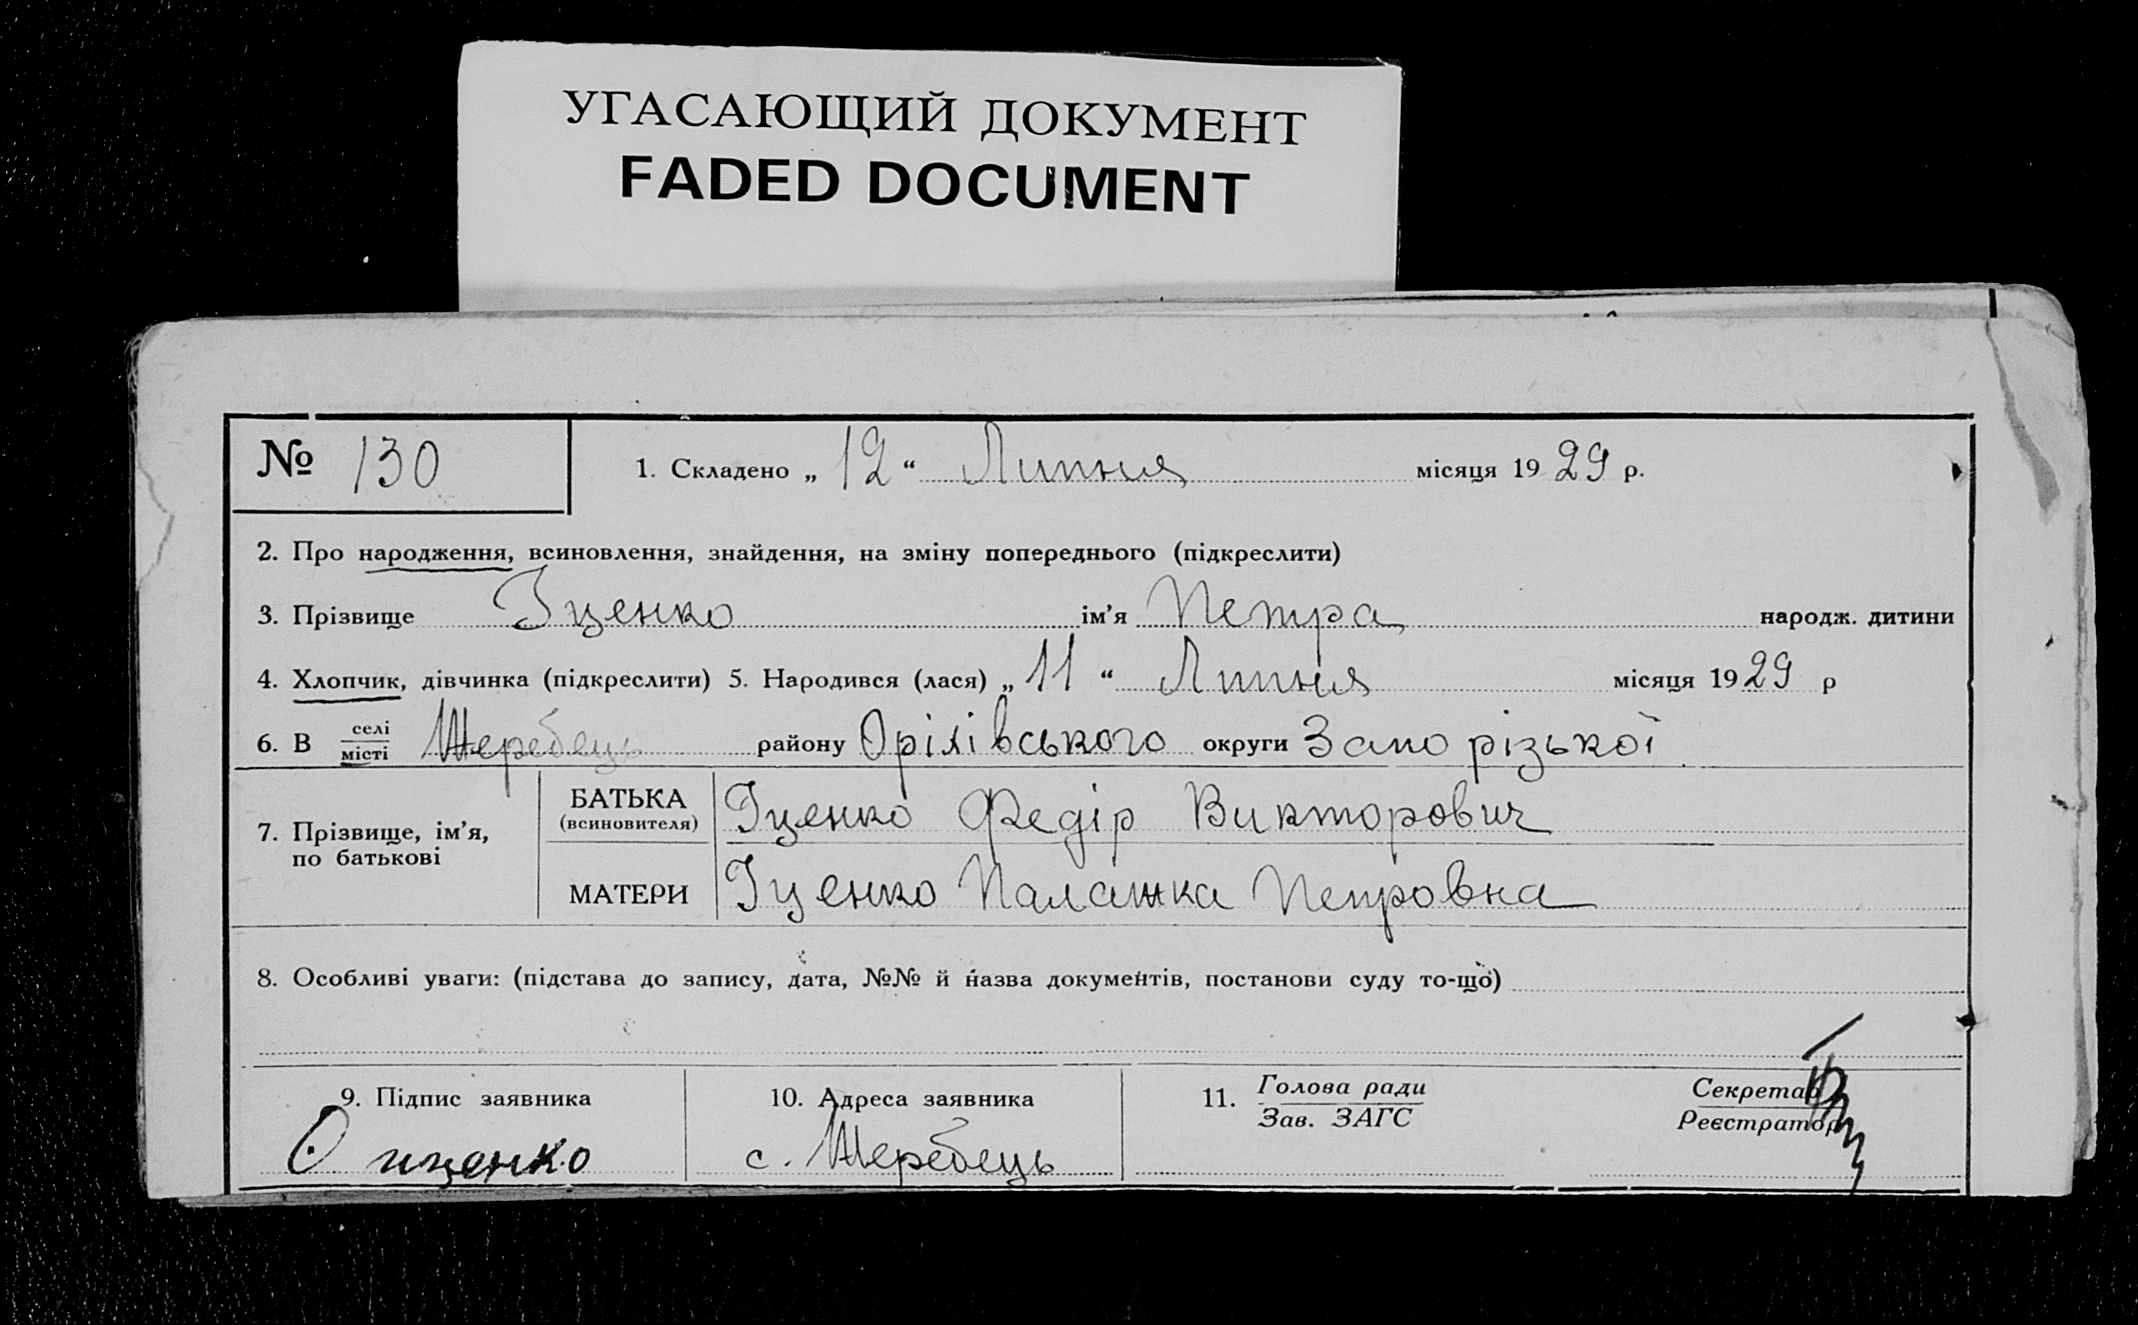 УГАСАЮЩИЙ ДОКУМЕНТ
FADED DOCUMENT
№ 130 1. Складено „ 12 “ Липня місяця 19 29 р.
2. Про народження, всиновлення, знайдення, на зміну попереднього (підкреслити)
3. Прізвище Іценко ім’я Петра народж. дитини
4. Хлопчик, дівчинка (підкреслити) 5. Народився (лася) „ 11 “ Липня місяця 19 29 р
6. В селі
місті Жеребець району Орілівського округи Запорізької
7. Прізвище, ім’я,
по батькові
БАТЬКА
(всиновителя) Іценко Федір Викторович
МАТЕРИ Іценко Палажка Петровна
8. Особливі уваги: (підстава до запису, дата, №№ й назва документів, постанови суду то-що)
9. Підпис заявника 10. Адреса заявника 11. Голова ради
Зав. ЗАГС
Секретар
Реєстратор
иценко с. Жеребець